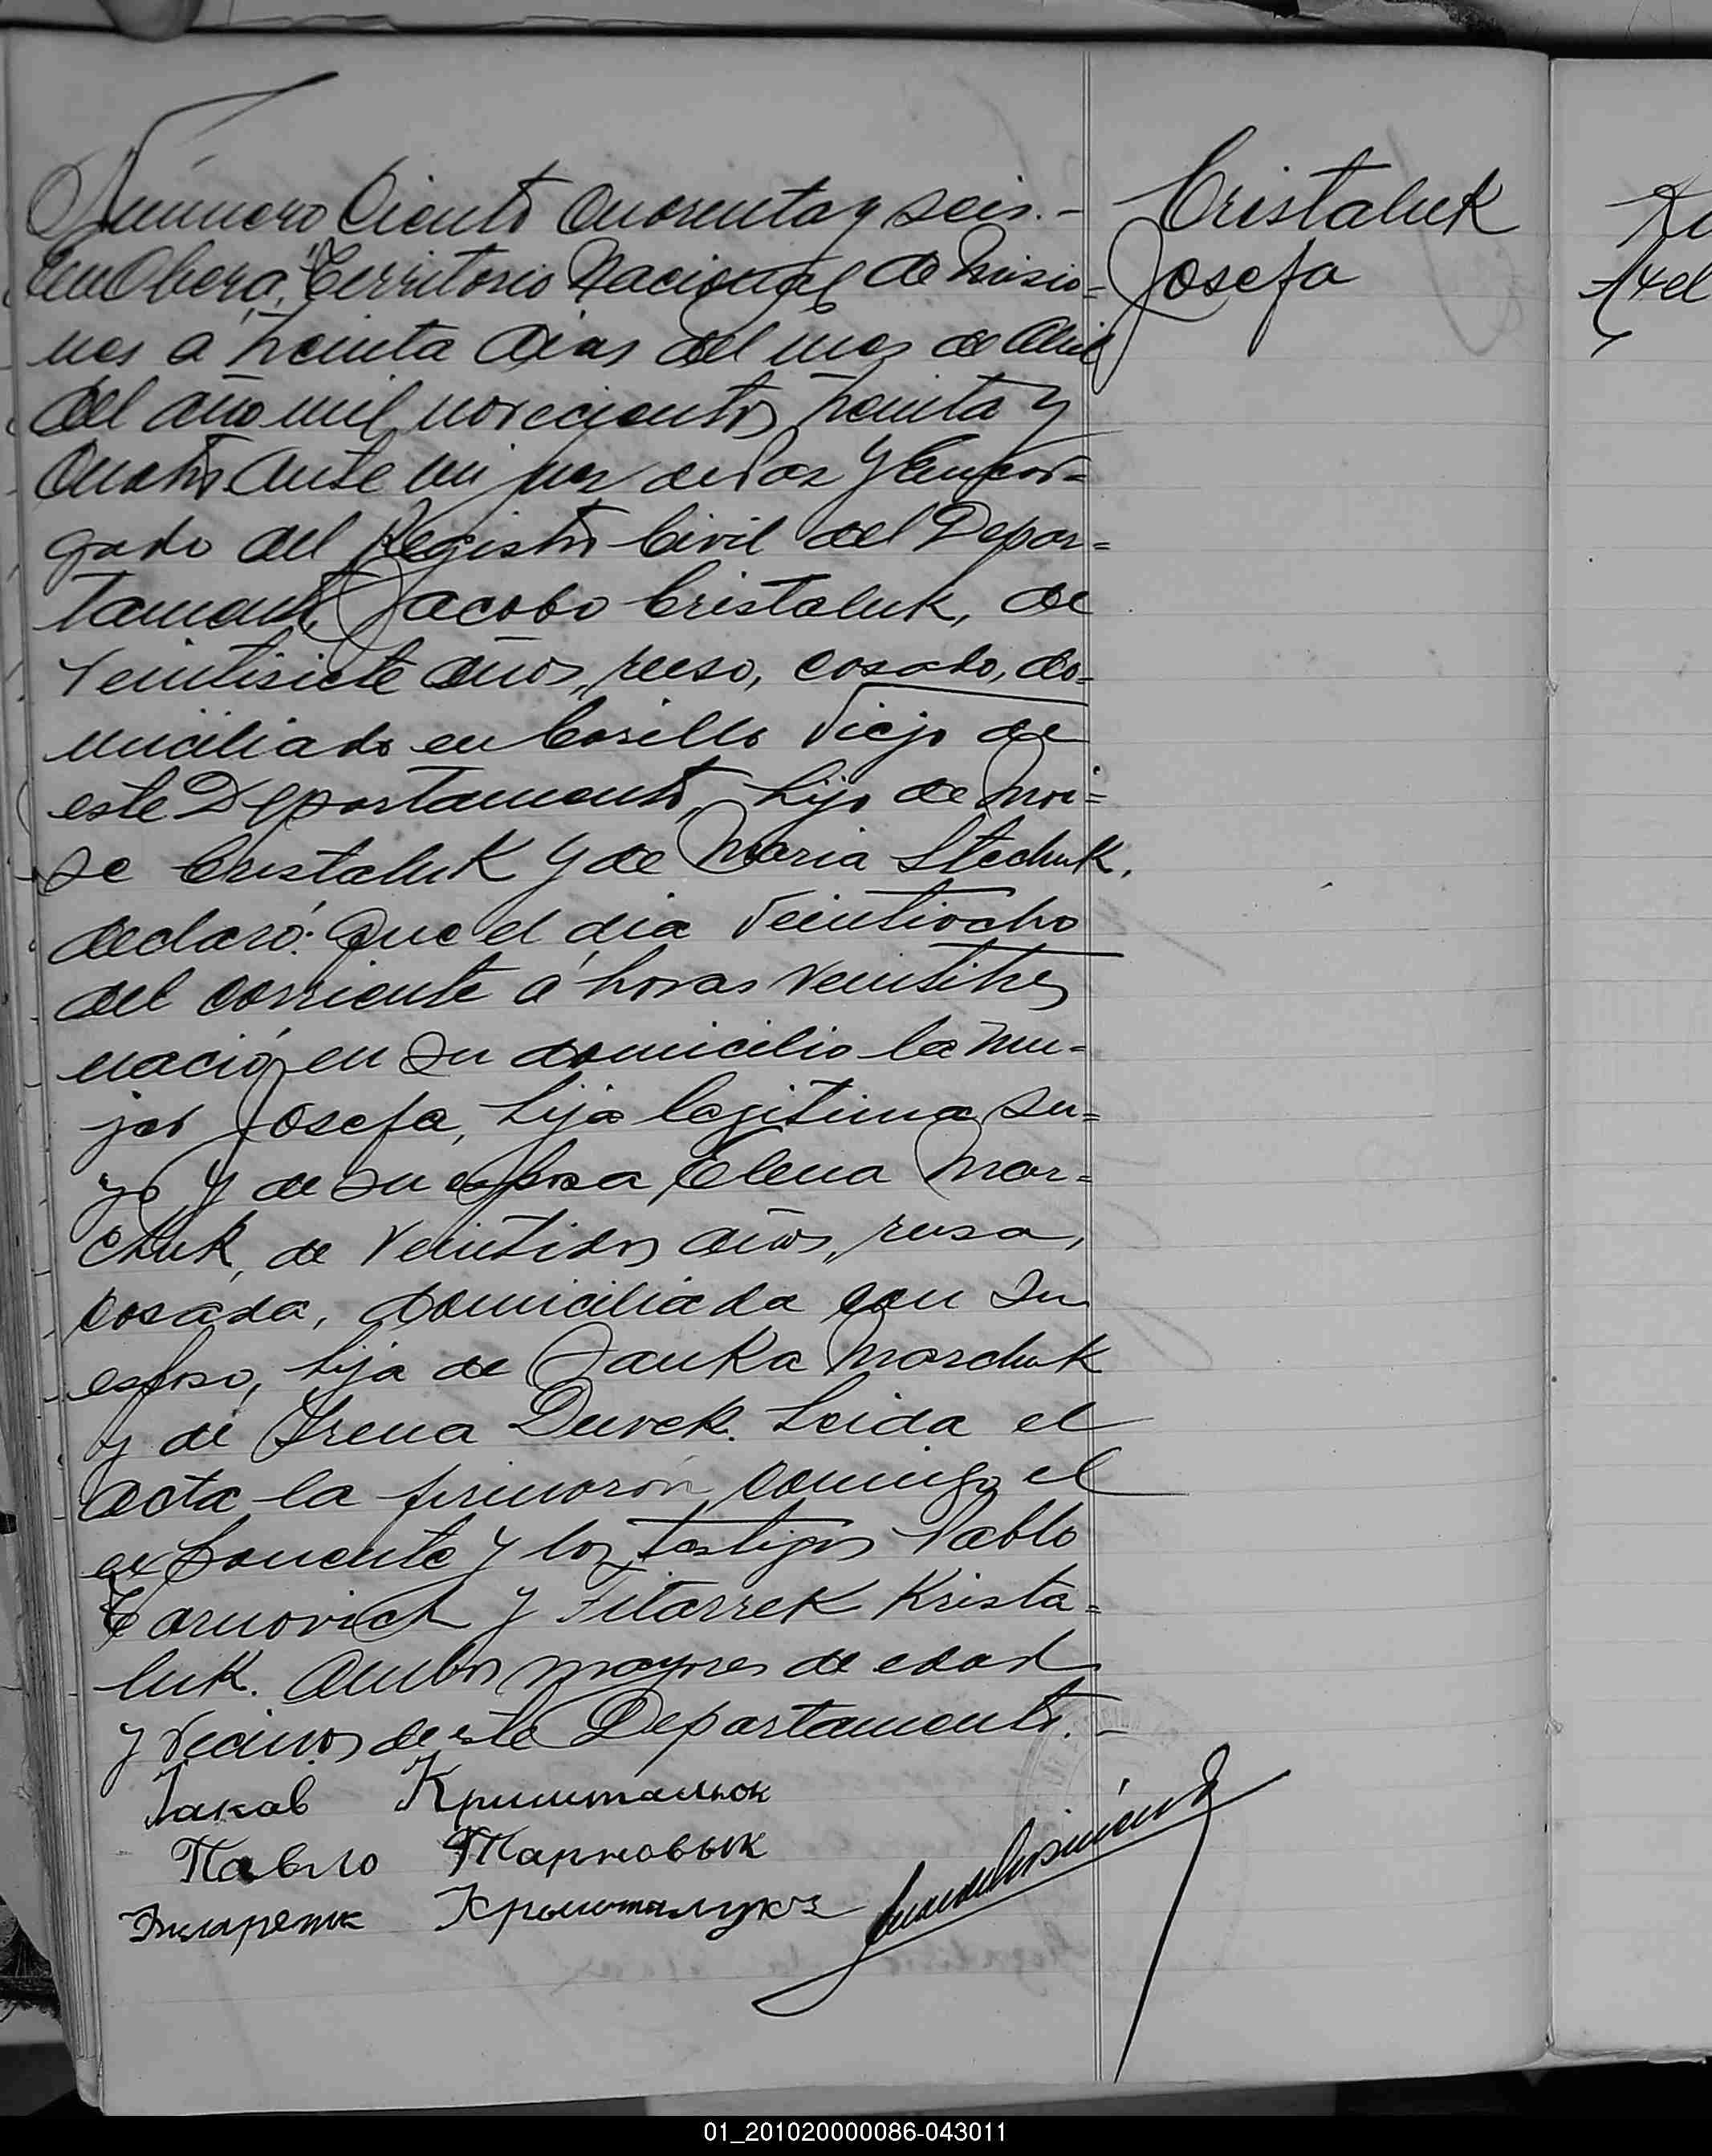 Número Ciento Cuarenta y seis.-
En Oberá, Territorio Nacional de Misio-
nes a treinta dias del mes de Abril
del año mil novecientos treinta y
Cuatro Ante mi juez de Paz y Encar=
gado del Registro Civil del Depar=
tamento, Jacobo Cristaluk, de
veintisiete años, ruso, casado, do=
miciliado en Cerillo Viejo de
este Departamento, hijo de Moi=
se Cristaluk y de Maria Stechuk,
declaró: Que el dia Veintiocho
del corriente á horas veintitres
nació en su domicilio la mu=
jer Josefa, hija legitima su=
ya y de su esposa Elena Mar=
chuk, de Veintidos años, rusa,
casada, domiciliada con su
esposo, hija de Janka Marchuk
y de Irena Durek. Leida el
acta la firmaron conmigo el
exponente y los testigos Pablo
Tarnovich y Fitarrek Krista=
luk. Ambos mayores de edad
y vecinos de este Departamento.-
Якав Криштальок
Павло Тарновык
Крыштлюкъ
Cristaluk
Josefa
Axel
01_201020000086-043011